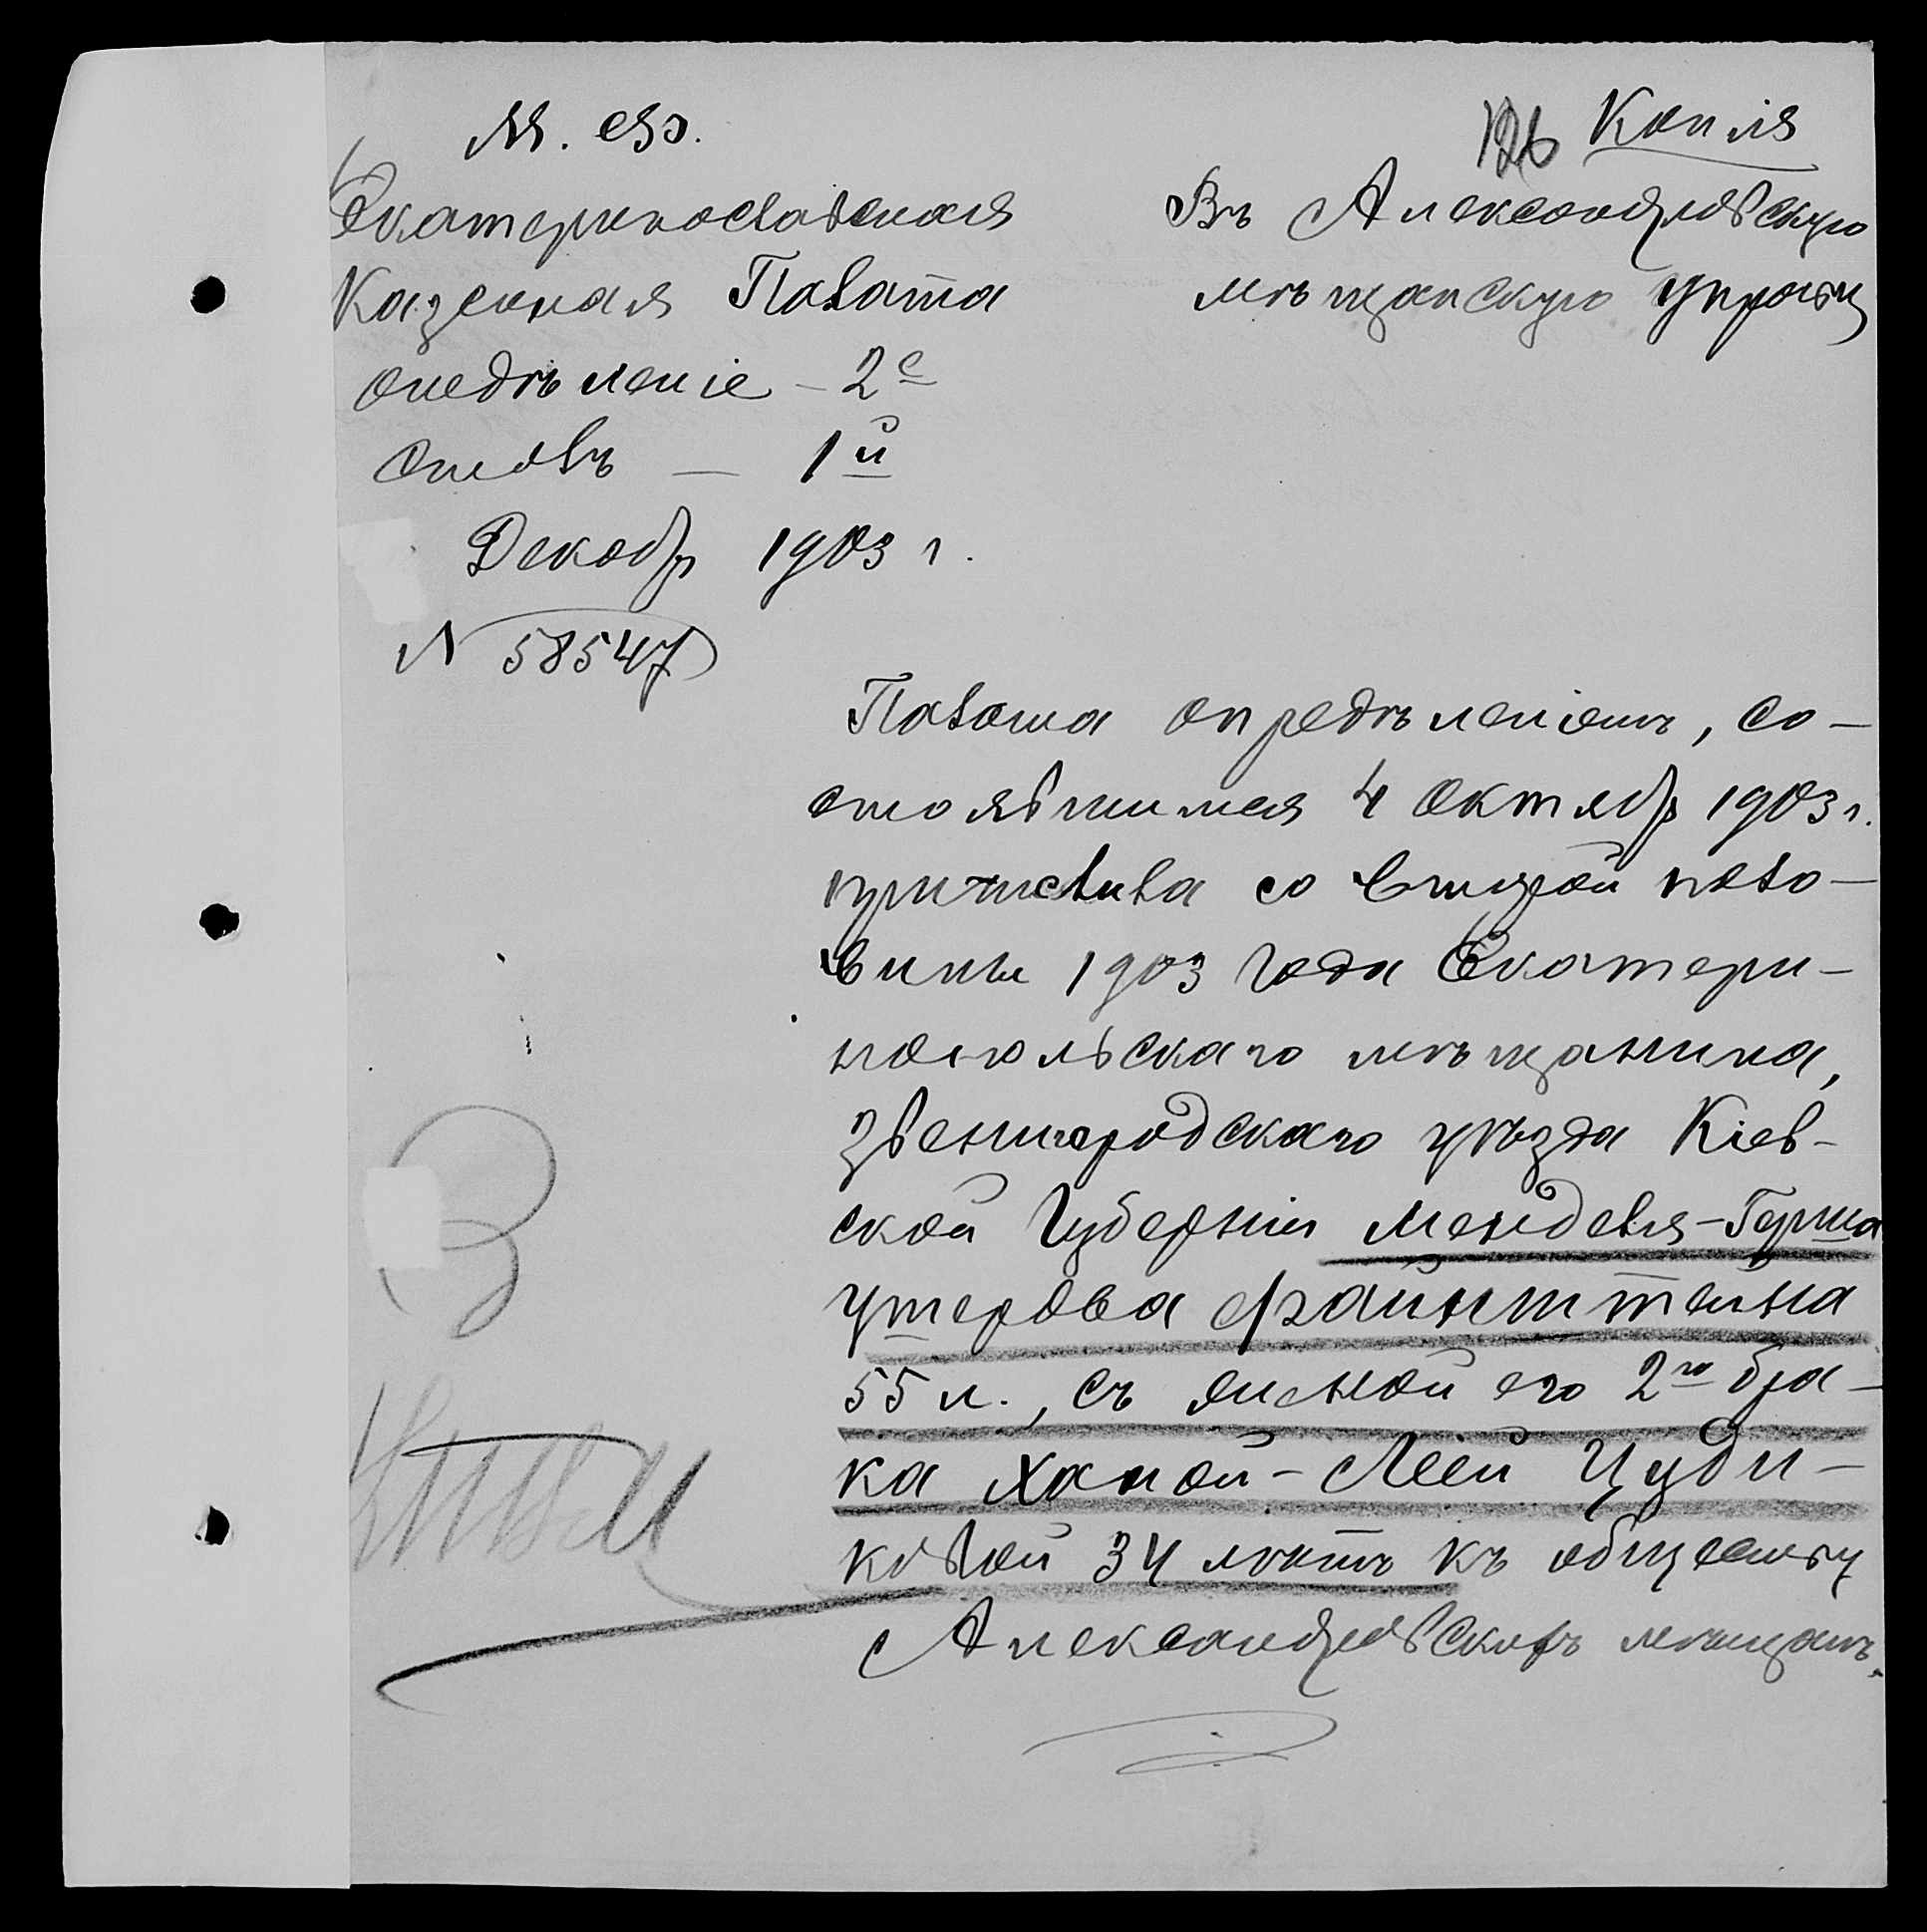 М. Ф.
Екатеринославская
Казенная Палата
отдѣленіе – 2е
столъ — 1й
Декабр 1903 г.
N 58547
126 Копія
Въ Александровскую
мѣщанскую управу
Палата опредѣленіемъ, со-
стоявшимся 4 Октябр 1903 г.
причислила со второй поло-
вины 1903 года Екатери-
нопольскаго мѣщанина,
Звенигородскаго уѣзда Кіев-
ской Губерніи Менделя-Герша
Утерова Файнштейна
55 л., съ женой его 2го бра-
ка Ханой-Леей Цуди-
ковой 34 лѣтъ къ обществу
Александровскихъ мѣщанъ.